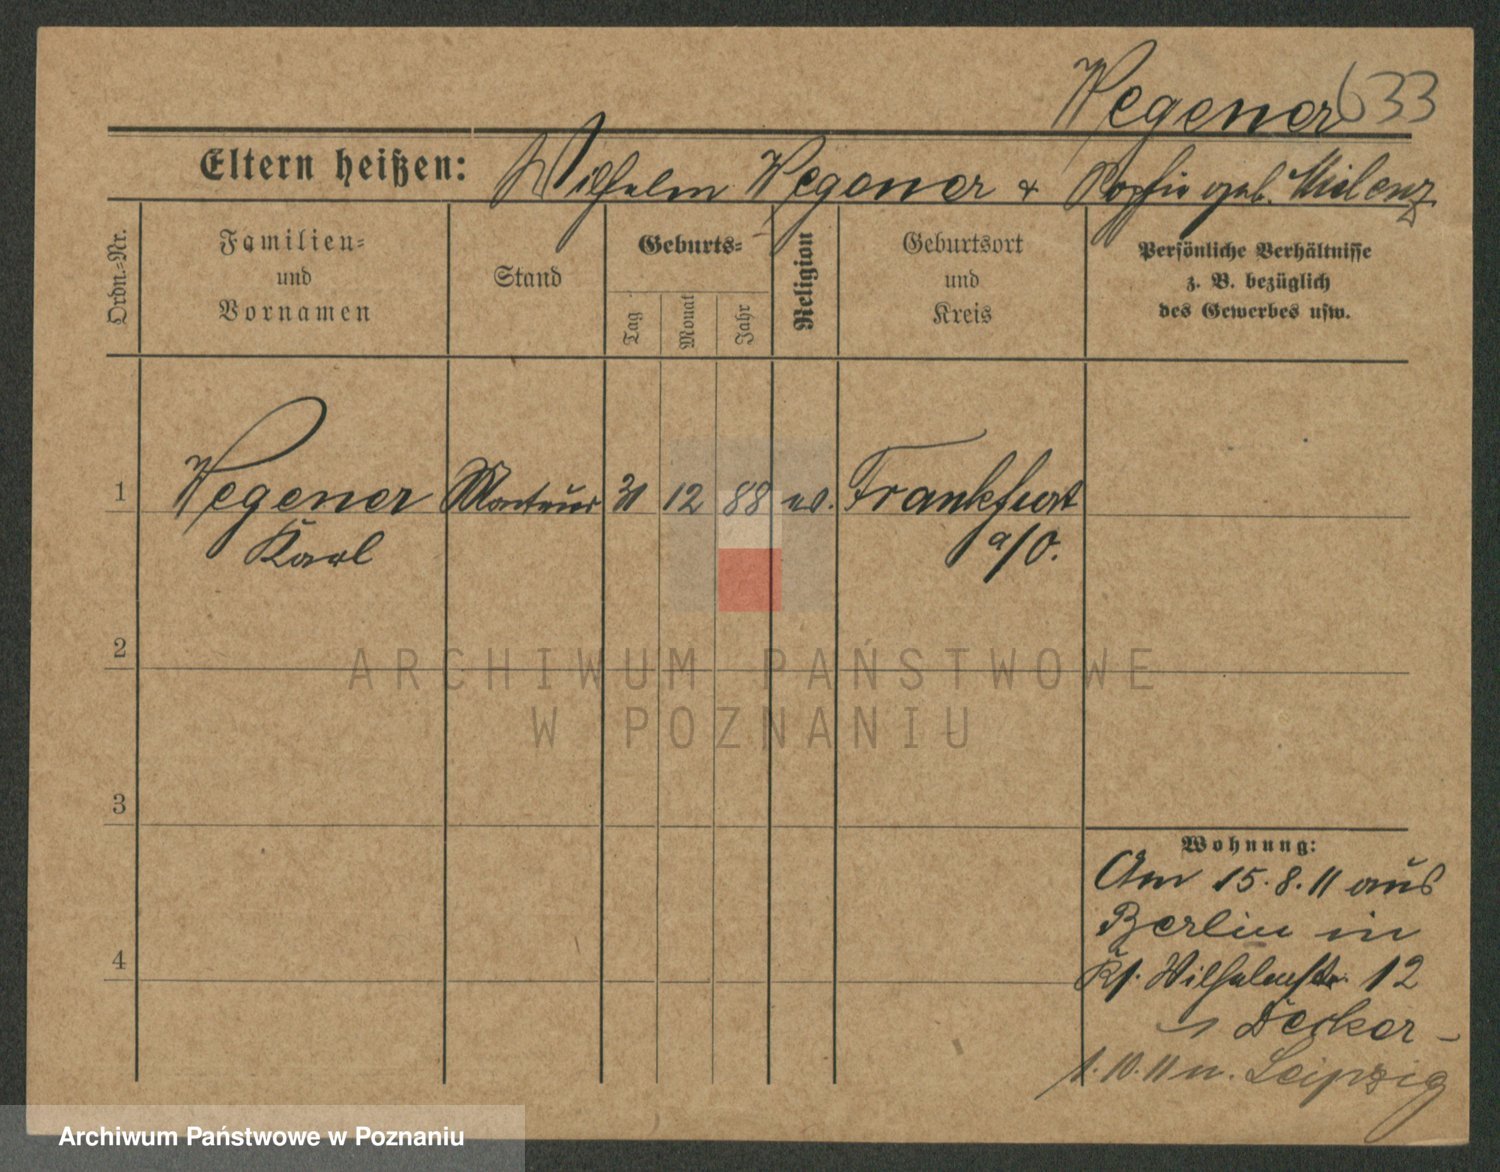 Wegener 633
Eltern heißen: Wilhelm Wegener & Sophie geb. Mielenz
Ordn.-Nr.
Familien-
und
Vornamen
Stand
Geburts-
Tag
Monat
Jahr
Religion
Geburtsort
und
Kreis
Persönliche Verhältnisse
z. B. bezüglich
des Gewerbes usw.
1 Wegener Monteur 31 12 88 ev. Frankfurt
Karl a/O.
2
3
4
Wohnung:
Am 15.8.11 aus
Berlin in
Wilhelmstr. 12
Decker -
1.10.11 n. Leipzig
ARCHIWUM PAŃSTWOWE
W POZNANIU
Archiwum Państwowe w Poznaniu